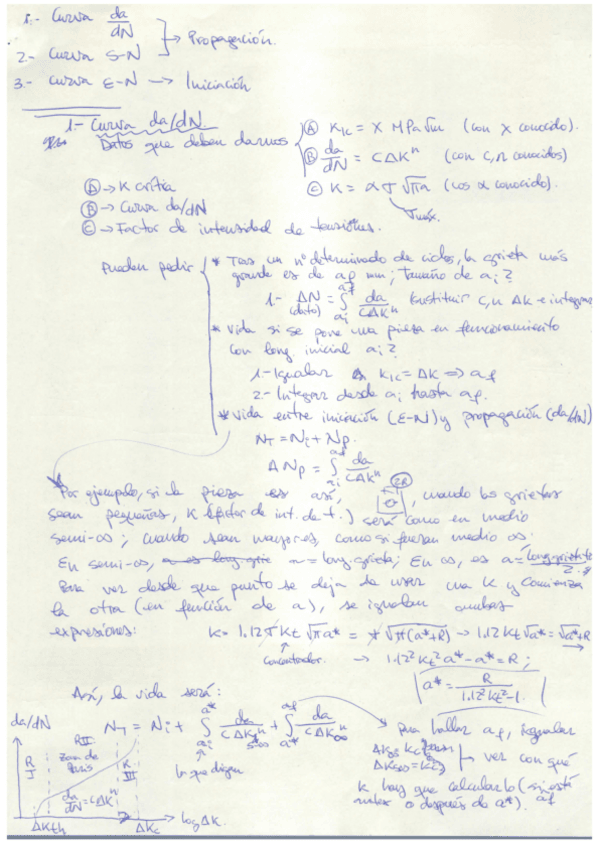 1.- Curva da/dN
2.- Curva S-N
→ Propagación.
3.- Curva E-N → Iniciación
1.- Curva da/dN
Datos que deben darnos
Ⓐ K_IC = X MPa√m (con X conocido).
Ⓑ da/dN = CΔK^n (con C, n conocidos)
Ⓒ K = α σ √πa (cos α conocido).
σmáx.
Ⓐ → K crítica
Ⓑ → Curva da/dN
Ⓒ → Factor de intensidad de tensiones.
Pueden pedir
* Tras un nº determinado de ciclos, la grieta más
grande es de af mm; ¿Tamaño de ai?
1.- ΔN = ∫ai^af da/CΔK^n (sustituir C, n ΔK e integrar
(dato)
* Vida si se pone una pieza en funcionamiento
con long. inicial ai?
1.- Igualar K_IC = ΔK ⇒ af
2.- Integrar desde ai hasta af.
* Vida entre iniciación (E-N) y propagación (da/dN)
N_T = Ni + Np.
Np = ∫ai^af da/CΔK^n
Por ejemplo, si la pieza es así, 2R, cuando las grietas
sean pequeñas, K (factor de int. de t.) será como en medio
semi-∞; cuando sean mayores, como si fueran medio ∞:
En semi-∞, a = long grieta; En ∞, es a = long grieta/2.
Para ver desde que punto se deja de usar una K y comienza
la otra (en función de a), se igualan ambas
expresiones: K = 1.12 Kt √πa* = √π(a*+R) → 1.12 Kt √a* = √a*+R →
Concentrador.
→ 1.12² Kt² a* - a* = R;
a* = R / 1.12² Kt² - 1.
Así, la vida será:
N_T = Ni + ∫ai^a* da/CΔK^n s-∞ + ∫a*^af da/CΔK∞^n
→ para hallar af, igualar
lo que digan
ver con qué
K hay que calcularlo (si está
antes o después de a*). af
da/dN
R I
R II
zona de Paris
da/dN = CΔK^n
R III
ΔKth
ΔKc
log ΔK.